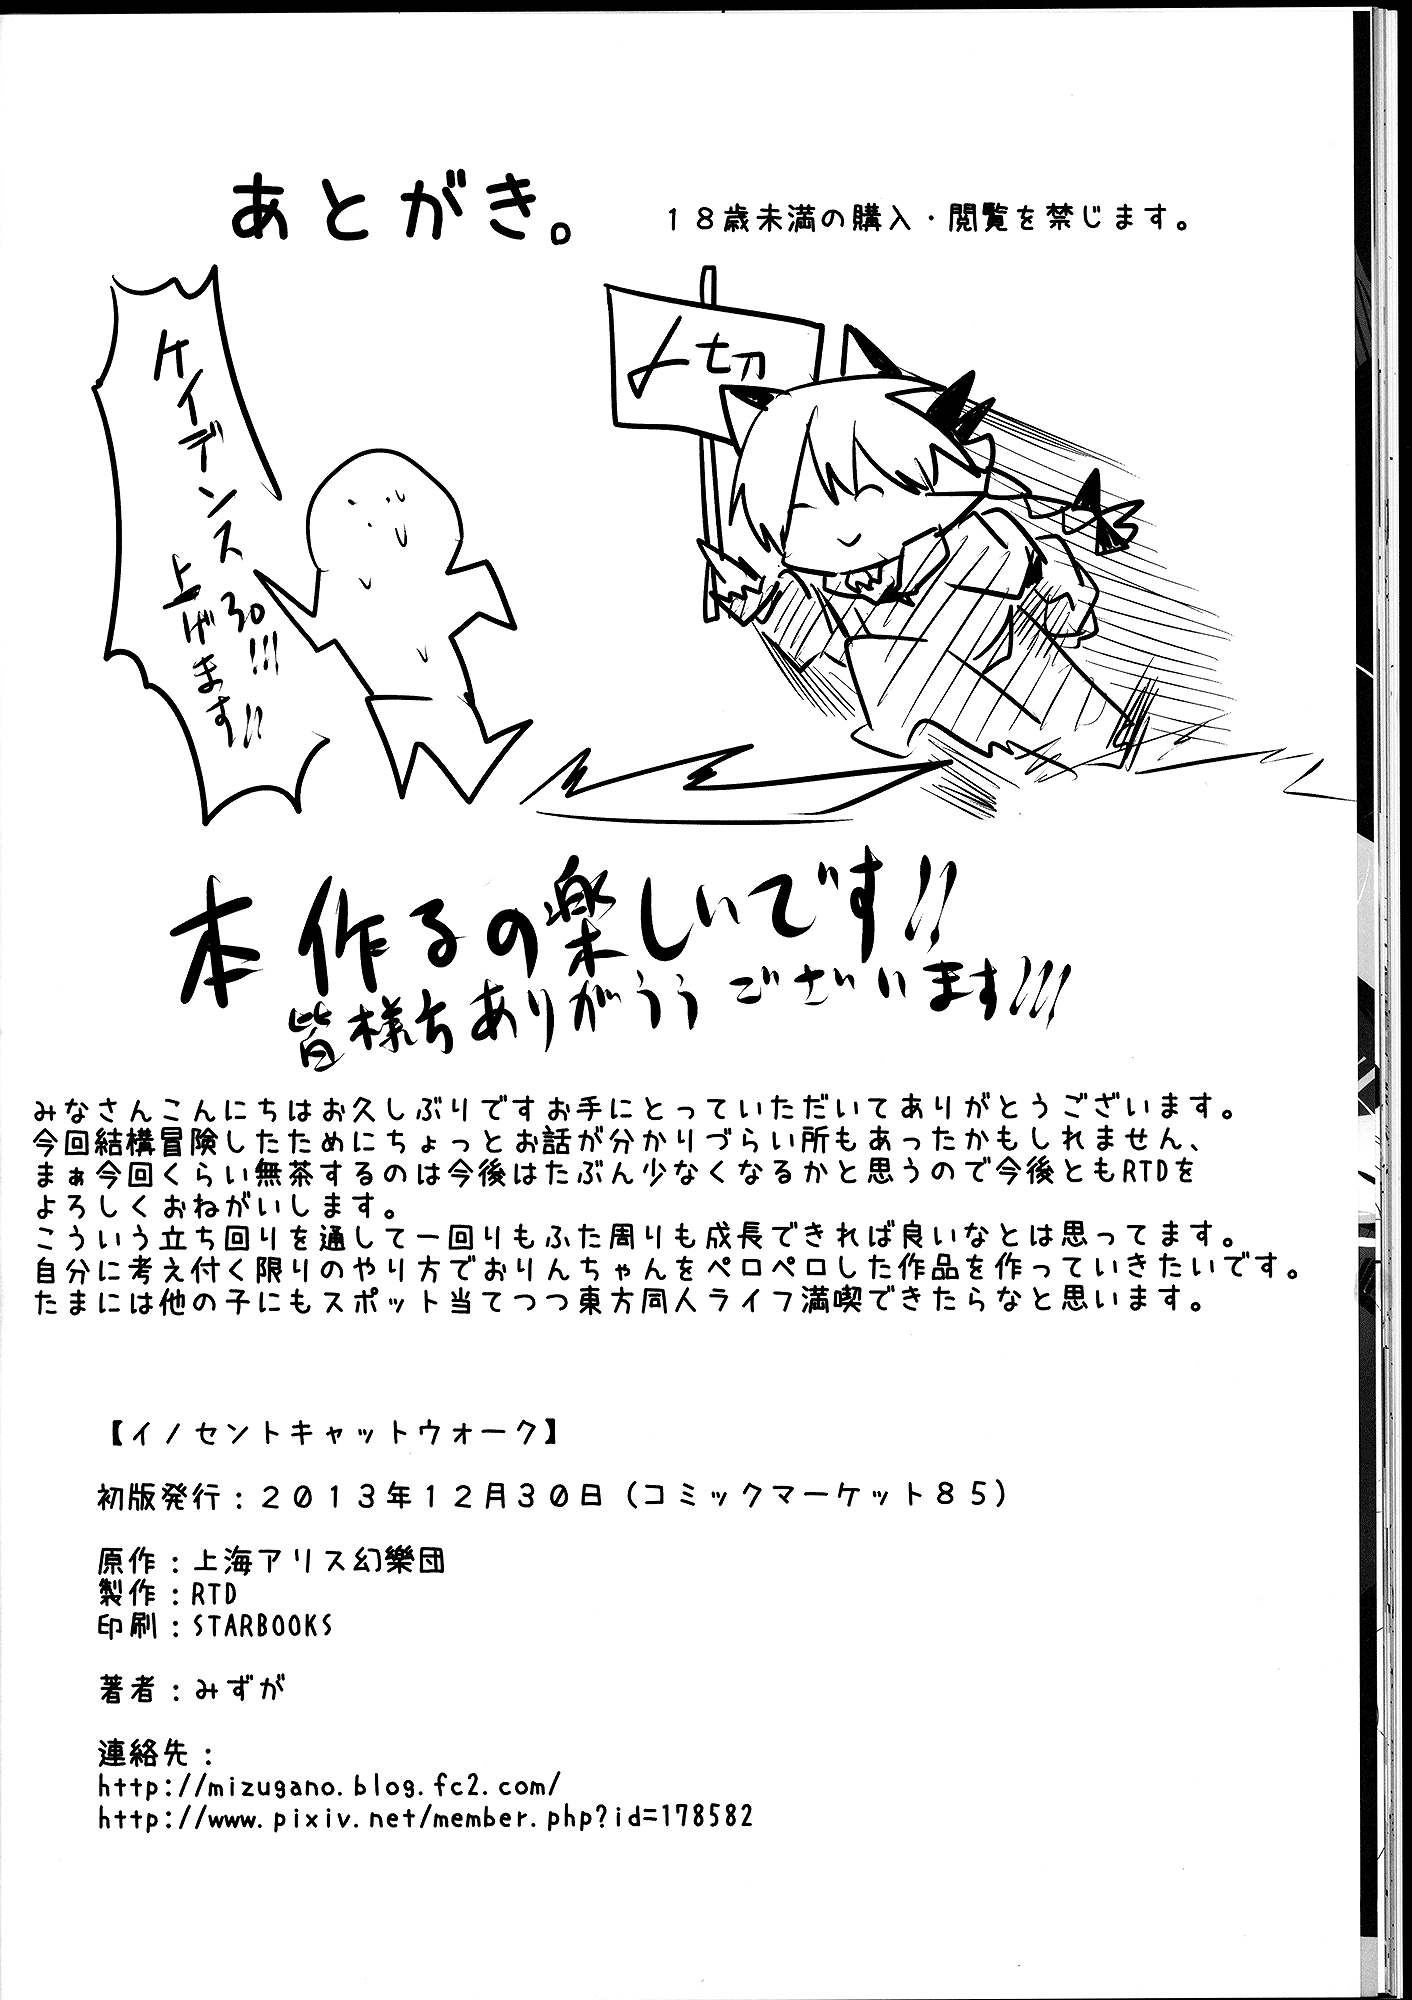 あとがき。
18歳未満の購入・閲覧を禁じます。
〆切
ケイデンス
30!!!
上げます!!
本作るの楽しいです!!
皆様ちありがううございます!!!
みなさんこんにちはお久しぶりですお手にとっていただいてありがとうございます。
今回結構冒険したためにちょっとお話が分かりづらい所もあったかもしれません、
まぁ今回くらい無茶するのは今後はたぶん少なくなるかと思うので今後ともRTDを
よろしくおねがいします。
こういう立ち回りを通して一回りもふた周りも成長できれば良いなとは思ってます。
自分に考え付く限りのやり方でおりんちゃんをペロペロした作品を作っていきたいです。
たまには他の子にもスポット当てつつ東方同人ライフ満喫できたらなと思います。
【イノセントキャットウォーク】
初版発行：2013年12月30日（コミックマーケット85）
原作：上海アリス幻樂団
製作：RTD
印刷：STARBOOKS
著者：みずが
連絡先：
http://mizugano.blog.fc2.com/
http://www.pixiv.net/member.php?id=178582